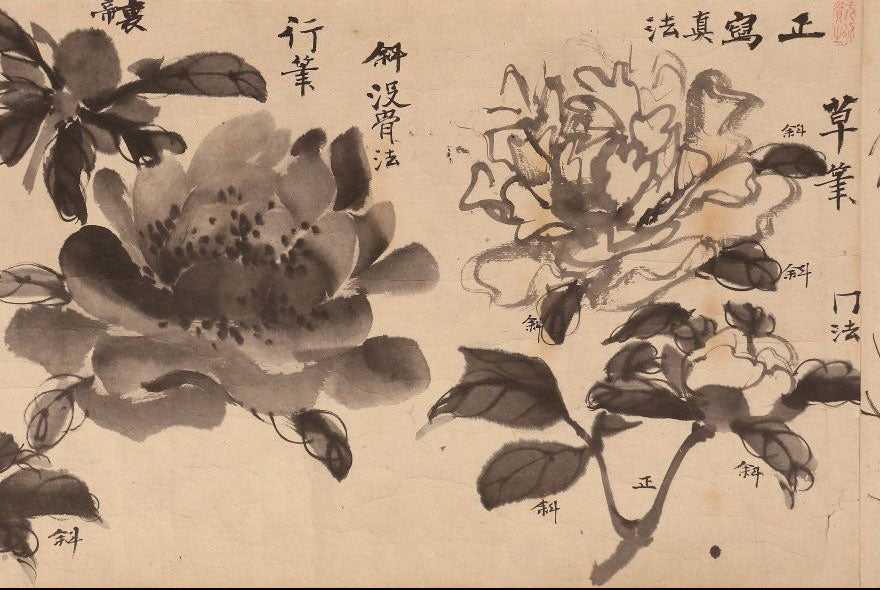 正寫真法
草筆
斜
斜
斜
门法
斜
正
斜
斜没骨法
行筆
裏
斜